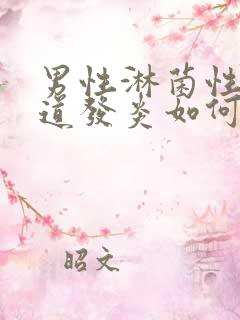 男性淋菌性
道發炎如何
昭文